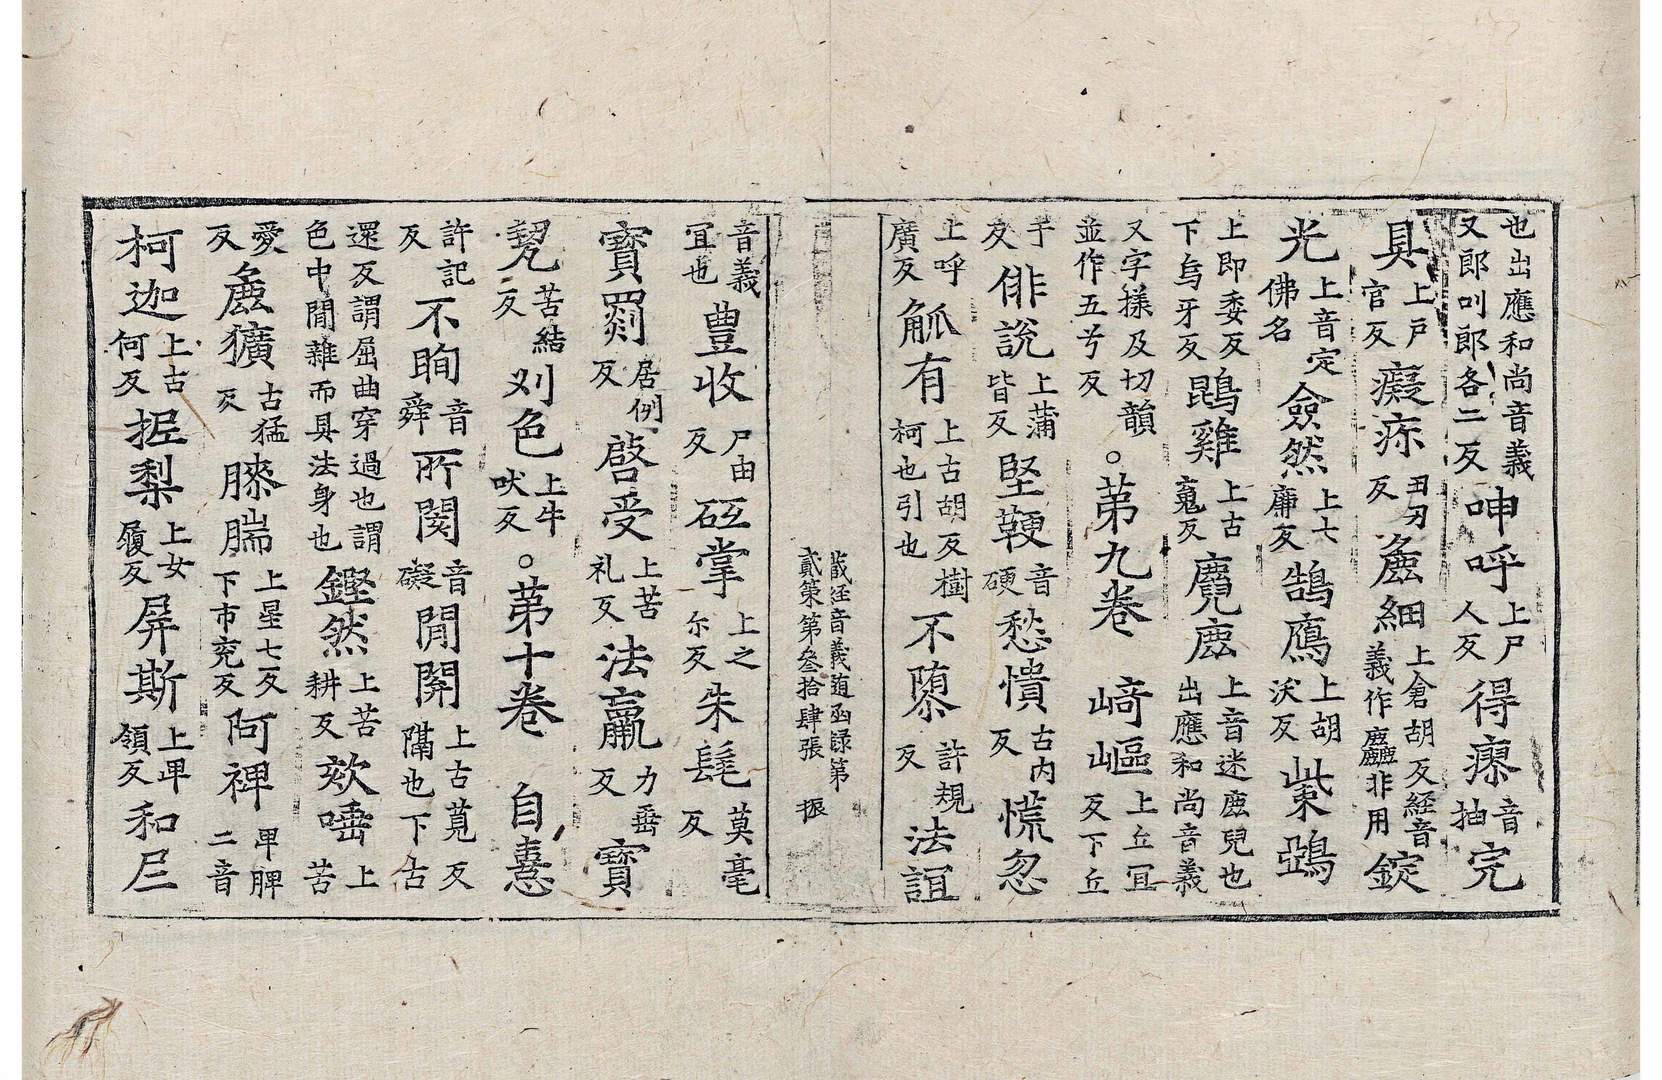 也出應和尚音義又郎叫郎各二反呻呼上尸人反得瘳音抽完
具上戶官反癡疢丑刃反麁細上倉胡反経音義作麤非用錠
光上音定佛名僉然上七廉反鵠鷹上胡沃反㭰鵶
上即委反下烏牙反鵾雞上古䰟反麑鹿上音迷鹿兒也出應和尚音義
又字樣及切韻並作五兮反。第九卷 崎嶇上丘冝反下丘
于反俳說上蒲皆反堅鞕音硬愁憒古內反慌忽
上呼廣反觚有上古胡反樹柯也引也不隳許規反法誼
藏经音義随函録第貳第第叄拾肆張 振
音義冝也豊收尸由反砥掌上之尔反朱髦莫毫反
寶罽居例反啓受上苦礼反法羸力垂反寶
苦結反二刈色上牛吠反。第十卷 自憙
許記反不眴音舜所閡音礙閒關上古莧反下古
還反謂屈曲穿過也謂色中閒雜而具法身也鏗然上苦耕反欬唾上苦
愛反麁獷古猛反膝腨上星七反下市兖反阿裨卑脾二音
柯迦上古何反抳梨上女履反屏斯上卑領反和尼